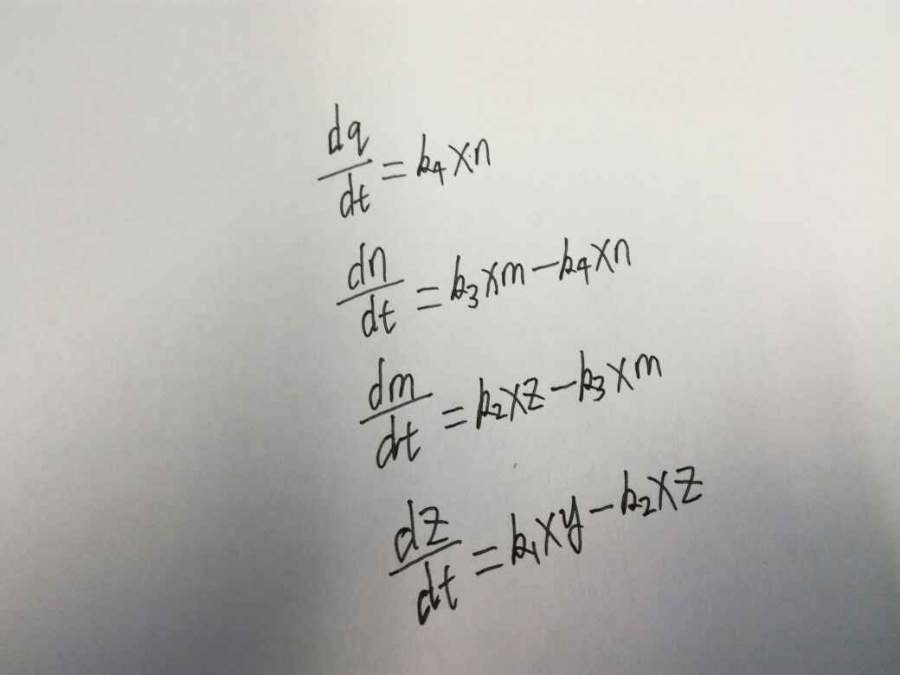 dq/dt = k₄xn
dn/dt = k₃xm − k₄xn
dm/dt = k₂xz − k₃xm
dz/dt = k₁xy − k₂xz